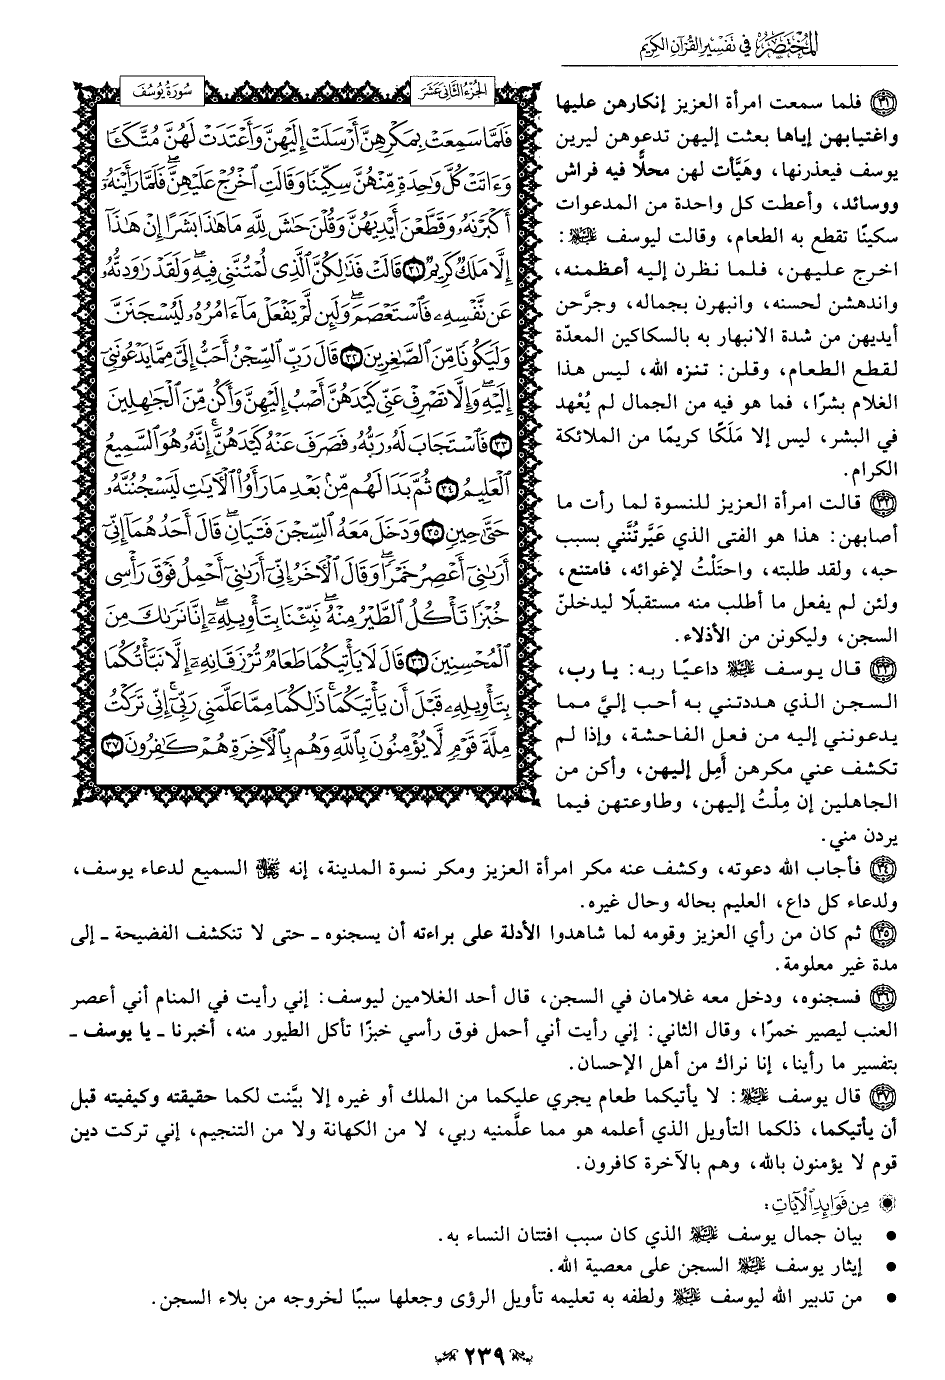 المختصر في تفسير القرآن الكريم
الجزء الثاني عشر
سورة يوسف
فَلَمَّا سَمِعَتْ بِمَكْرِهِنَّ أَرْسَلَتْ إِلَيْهِنَّ وَأَعْتَدَتْ لَهُنَّ مُتَّكَـًٔا
وَءَاتَتْ كُلَّ وَٰحِدَةٍ مِّنْهُنَّ سِكِّينًا وَقَالَتِ ٱخْرُجْ عَلَيْهِنَّ ۖ فَلَمَّا رَأَيْنَهُۥٓ
أَكْبَرْنَهُۥ وَقَطَّعْنَ أَيْدِيَهُنَّ وَقُلْنَ حَٰشَ لِلَّهِ مَا هَٰذَا بَشَرًا إِنْ هَٰذَآ
إِلَّا مَلَكٌ كَرِيمٌ ٣١ قَالَتْ فَذَٰلِكُنَّ ٱلَّذِى لُمْتُنَّنِى فِيهِ ۖ وَلَقَدْ رَٰوَدتُّهُۥ
عَن نَّفْسِهِۦ فَٱسْتَعْصَمَ ۖ وَلَئِن لَّمْ يَفْعَلْ مَآ ءَامُرُهُۥ لَيُسْجَنَنَّ
وَلَيَكُونًا مِّنَ ٱلصَّٰغِرِينَ ٣٢ قَالَ رَبِّ ٱلسِّجْنُ أَحَبُّ إِلَىَّ مِمَّا يَدْعُونَنِىٓ
إِلَيْهِ ۖ وَإِلَّا تَصْرِفْ عَنِّى كَيْدَهُنَّ أَصْبُ إِلَيْهِنَّ وَأَكُن مِّنَ ٱلْجَٰهِلِينَ
٣٣ فَٱسْتَجَابَ لَهُۥ رَبُّهُۥ فَصَرَفَ عَنْهُ كَيْدَهُنَّ ۚ إِنَّهُۥ هُوَ ٱلسَّمِيعُ
ٱلْعَلِيمُ ٣٤ ثُمَّ بَدَا لَهُم مِّنۢ بَعْدِ مَا رَأَوُا۟ ٱلْءَايَٰتِ لَيَسْجُنُنَّهُۥ
حَتَّىٰ حِينٍ ٣٥ وَدَخَلَ مَعَهُ ٱلسِّجْنَ فَتَيَانِ ۖ قَالَ أَحَدُهُمَآ إِنِّىٓ
أَرَىٰنِىٓ أَعْصِرُ خَمْرًا ۖ وَقَالَ ٱلْءَاخَرُ إِنِّىٓ أَرَىٰنِىٓ أَحْمِلُ فَوْقَ رَأْسِى
خُبْزًا تَأْكُلُ ٱلطَّيْرُ مِنْهُ ۖ نَبِّئْنَا بِتَأْوِيلِهِۦٓ ۖ إِنَّا نَرَىٰكَ مِنَ
ٱلْمُحْسِنِينَ ٣٦ قَالَ لَا يَأْتِيكُمَا طَعَامٌ تُرْزَقَانِهِۦٓ إِلَّا نَبَّأْتُكُمَا
بِتَأْوِيلِهِۦ قَبْلَ أَن يَأْتِيَكُمَا ۚ ذَٰلِكُمَا مِمَّا عَلَّمَنِى رَبِّىٓ ۚ إِنِّى تَرَكْتُ
مِلَّةَ قَوْمٍ لَّا يُؤْمِنُونَ بِٱللَّهِ وَهُم بِٱلْءَاخِرَةِ هُمْ كَٰفِرُونَ ٣٧
٣١ فلما سمعت امرأة العزيز إنكارهن عليها
واغتيابهن إياها بعثت إليهن تدعوهن ليرين
يوسف فيعذرنها، وهَيَّأت لهن محلًّا فيه فراش
ووسائد، وأعطت كل واحدة من المدعوات
سكينًا تقطع به الطعام، وقالت ليوسف عليه السلام:
اخرج عليهن، فلما نظرن إليه أعظمنه،
واندهشن لحسنه، وانبهرن بجماله، وجرَّحن
أيديهن من شدة الانبهار به بالسكاكين المعدّة
لقطع الطعام، وقلن: تنزه الله، ليس هذا
الغلام بشرًا، فما هو فيه من الجمال لم يُعْهد
في البشر، ليس إلا مَلَكًا كريمًا من الملائكة
الكرام.
٣٢ قالت امرأة العزيز للنسوة لما رأت ما
أصابهن: هذا هو الفتى الذي عَيَّرتُنَّني بسبب
حبه، ولقد طلبته، واحتَلْتُ لإغوائه، فامتنع،
ولئن لم يفعل ما أطلب منه مستقبلًا ليدخلنّ
السجن، وليكونن من الأذلاء.
٣٣ قال يوسف عليه السلام داعيًا ربه: يا رب،
السجن الذي هددتني به أحب إليَّ مما
يدعونني إليه من فعل الفاحشة، وإذا لم
تكشف عني مكرهن أَمِل إليهن، وأكن من
الجاهلين إن مِلْتُ إليهن، وطاوعتهن فيما
يردن مني.
٣٤ فأجاب الله دعوته، وكشف عنه مكر امرأة العزيز ومكر نسوة المدينة، إنه سبحانه السميع لدعاء يوسف،
ولدعاء كل داع، العليم بحاله وحال غيره.
٣٥ ثم كان من رأي العزيز وقومه لما شاهدوا الأدلة على براءته أن يسجنوه ـ حتى لا تنكشف الفضيحة ـ إلى
مدة غير معلومة.
٣٦ فسجنوه، ودخل معه غلامان في السجن، قال أحد الغلامين ليوسف: إني رأيت في المنام أني أعصر
العنب ليصير خمرًا، وقال الثاني: إني رأيت أني أحمل فوق رأسي خبزًا تأكل الطيور منه، أخبرنا ـ يا يوسف ـ
بتفسير ما رأينا، إنا نراك من أهل الإحسان.
٣٧ قال يوسف عليه السلام: لا يأتيكما طعام يجري عليكما من الملك أو غيره إلا بيَّنت لكما حقيقته وكيفيته قبل
أن يأتيكما، ذلكما التأويل الذي أعلمه هو مما علَّمنيه ربي، لا من الكهانة ولا من التنجيم، إني تركت دين
قوم لا يؤمنون بالله، وهم بالآخرة كافرون.
من فوائد الآيات:
• بيان جمال يوسف عليه السلام الذي كان سبب افتتان النساء به.
• إيثار يوسف عليه السلام السجن على معصية الله.
• من تدبير الله ليوسف عليه السلام ولطفه به تعليمه تأويل الرؤى وجعلها سببًا لخروجه من بلاء السجن.
٢٣٩